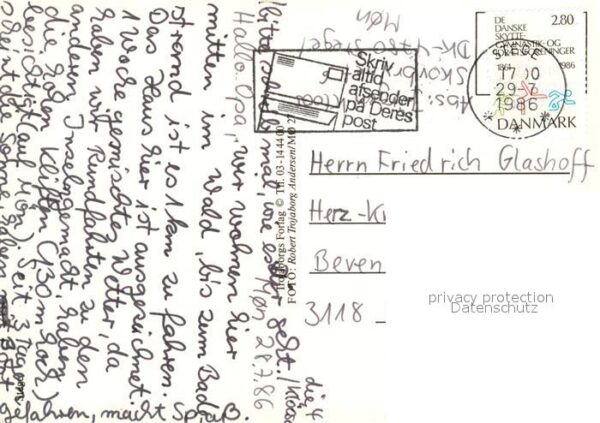 Møn, 28.7.86
Hallo Opa, wir wohnen hier
mitten im Wald, bis zum Bade
strand ist es 1 km zu fahren.
Das Haus hier ist ausgezeichnet.
1 Woche gemischtes Wetter, da
haben wir Rundfahrten zu den
anderen Inseln gemacht, haben
die hohen Klippen (130m hoch)
(auf Møn). Seit 3 Tagen
scheint die Sonne, haben
Boot
gefahren, macht Spaß.
Bitte
mal, wie es
geht.
die 4
Abs:
Skovbr
DK-4780 Stege
Møn
Trojaborgs Forlag © Tlf. 03-144400
FOTO: Robert Trojaborg Andersen/MØ 27
Skriv
altid
afsender
på Deres
post
DE
DANSKE
SKYTTE-
GYMNASTIK- OG
IDRÆTSFORENINGER
2.80
1861
1986
DANMARK
STEGE
17 00
29-7
1986
Herrn Friedrich Glashoff
Herz-K
Beven
3118
privacy protection
Datenschutz